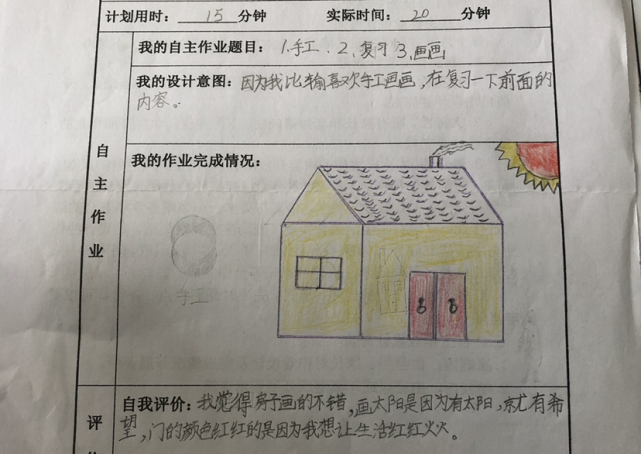 计划用时： 15 分钟 实际时间： 20 分钟
我的自主作业题目： 1.手工、2.复习 3.画画
我的设计意图：因为我比较喜欢手工画画，在复习一下前面的
内容。
自主作业
我的作业完成情况：
手工
自我评价：我觉得房子画的不错，画太阳是因为有太阳，就有希
望，门的颜色红红的是因为我想让生活红红火火。
评